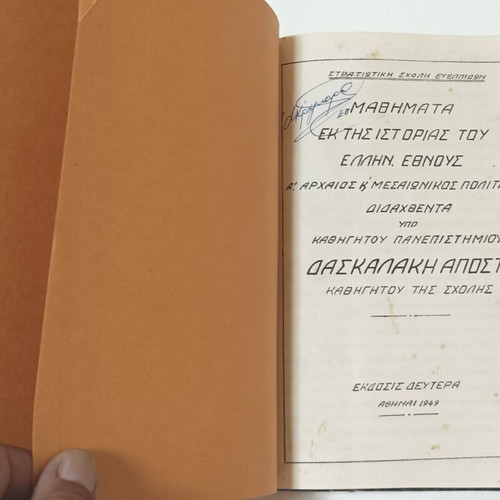 ΣΤΡΑΤΙΩΤΙΚΗ ΣΧΟΛΗ ΕΥΕΛΠΙΔΩΝ
ΜΑΘΗΜΑΤΑ
ΕΚ ΤΗΣ ΙΣΤΟΡΙΑΣ ΤΟΥ
ΕΛΛΗΝ. ΕΘΝΟΥΣ
Α'. ΑΡΧΑΙΟΣ Κ' ΜΕΣΑΙΩΝΙΚΟΣ ΠΟΛΙΤ
ΔΙΔΑΧΘΕΝΤΑ
ΥΠΟ
ΚΑΘΗΓΗΤΟΥ ΠΑΝΕΠΙΣΤΗΜΙΟΥ
ΔΑΣΚΑΛΑΚΗ ΑΠΟΣΤ
ΚΑΘΗΓΗΤΟΥ ΤΗΣ ΣΧΟΛΗΣ
ΕΚΔΟΣΙΣ ΔΕΥΤΕΡΑ
ΑΘΗΝΑΙ 1949